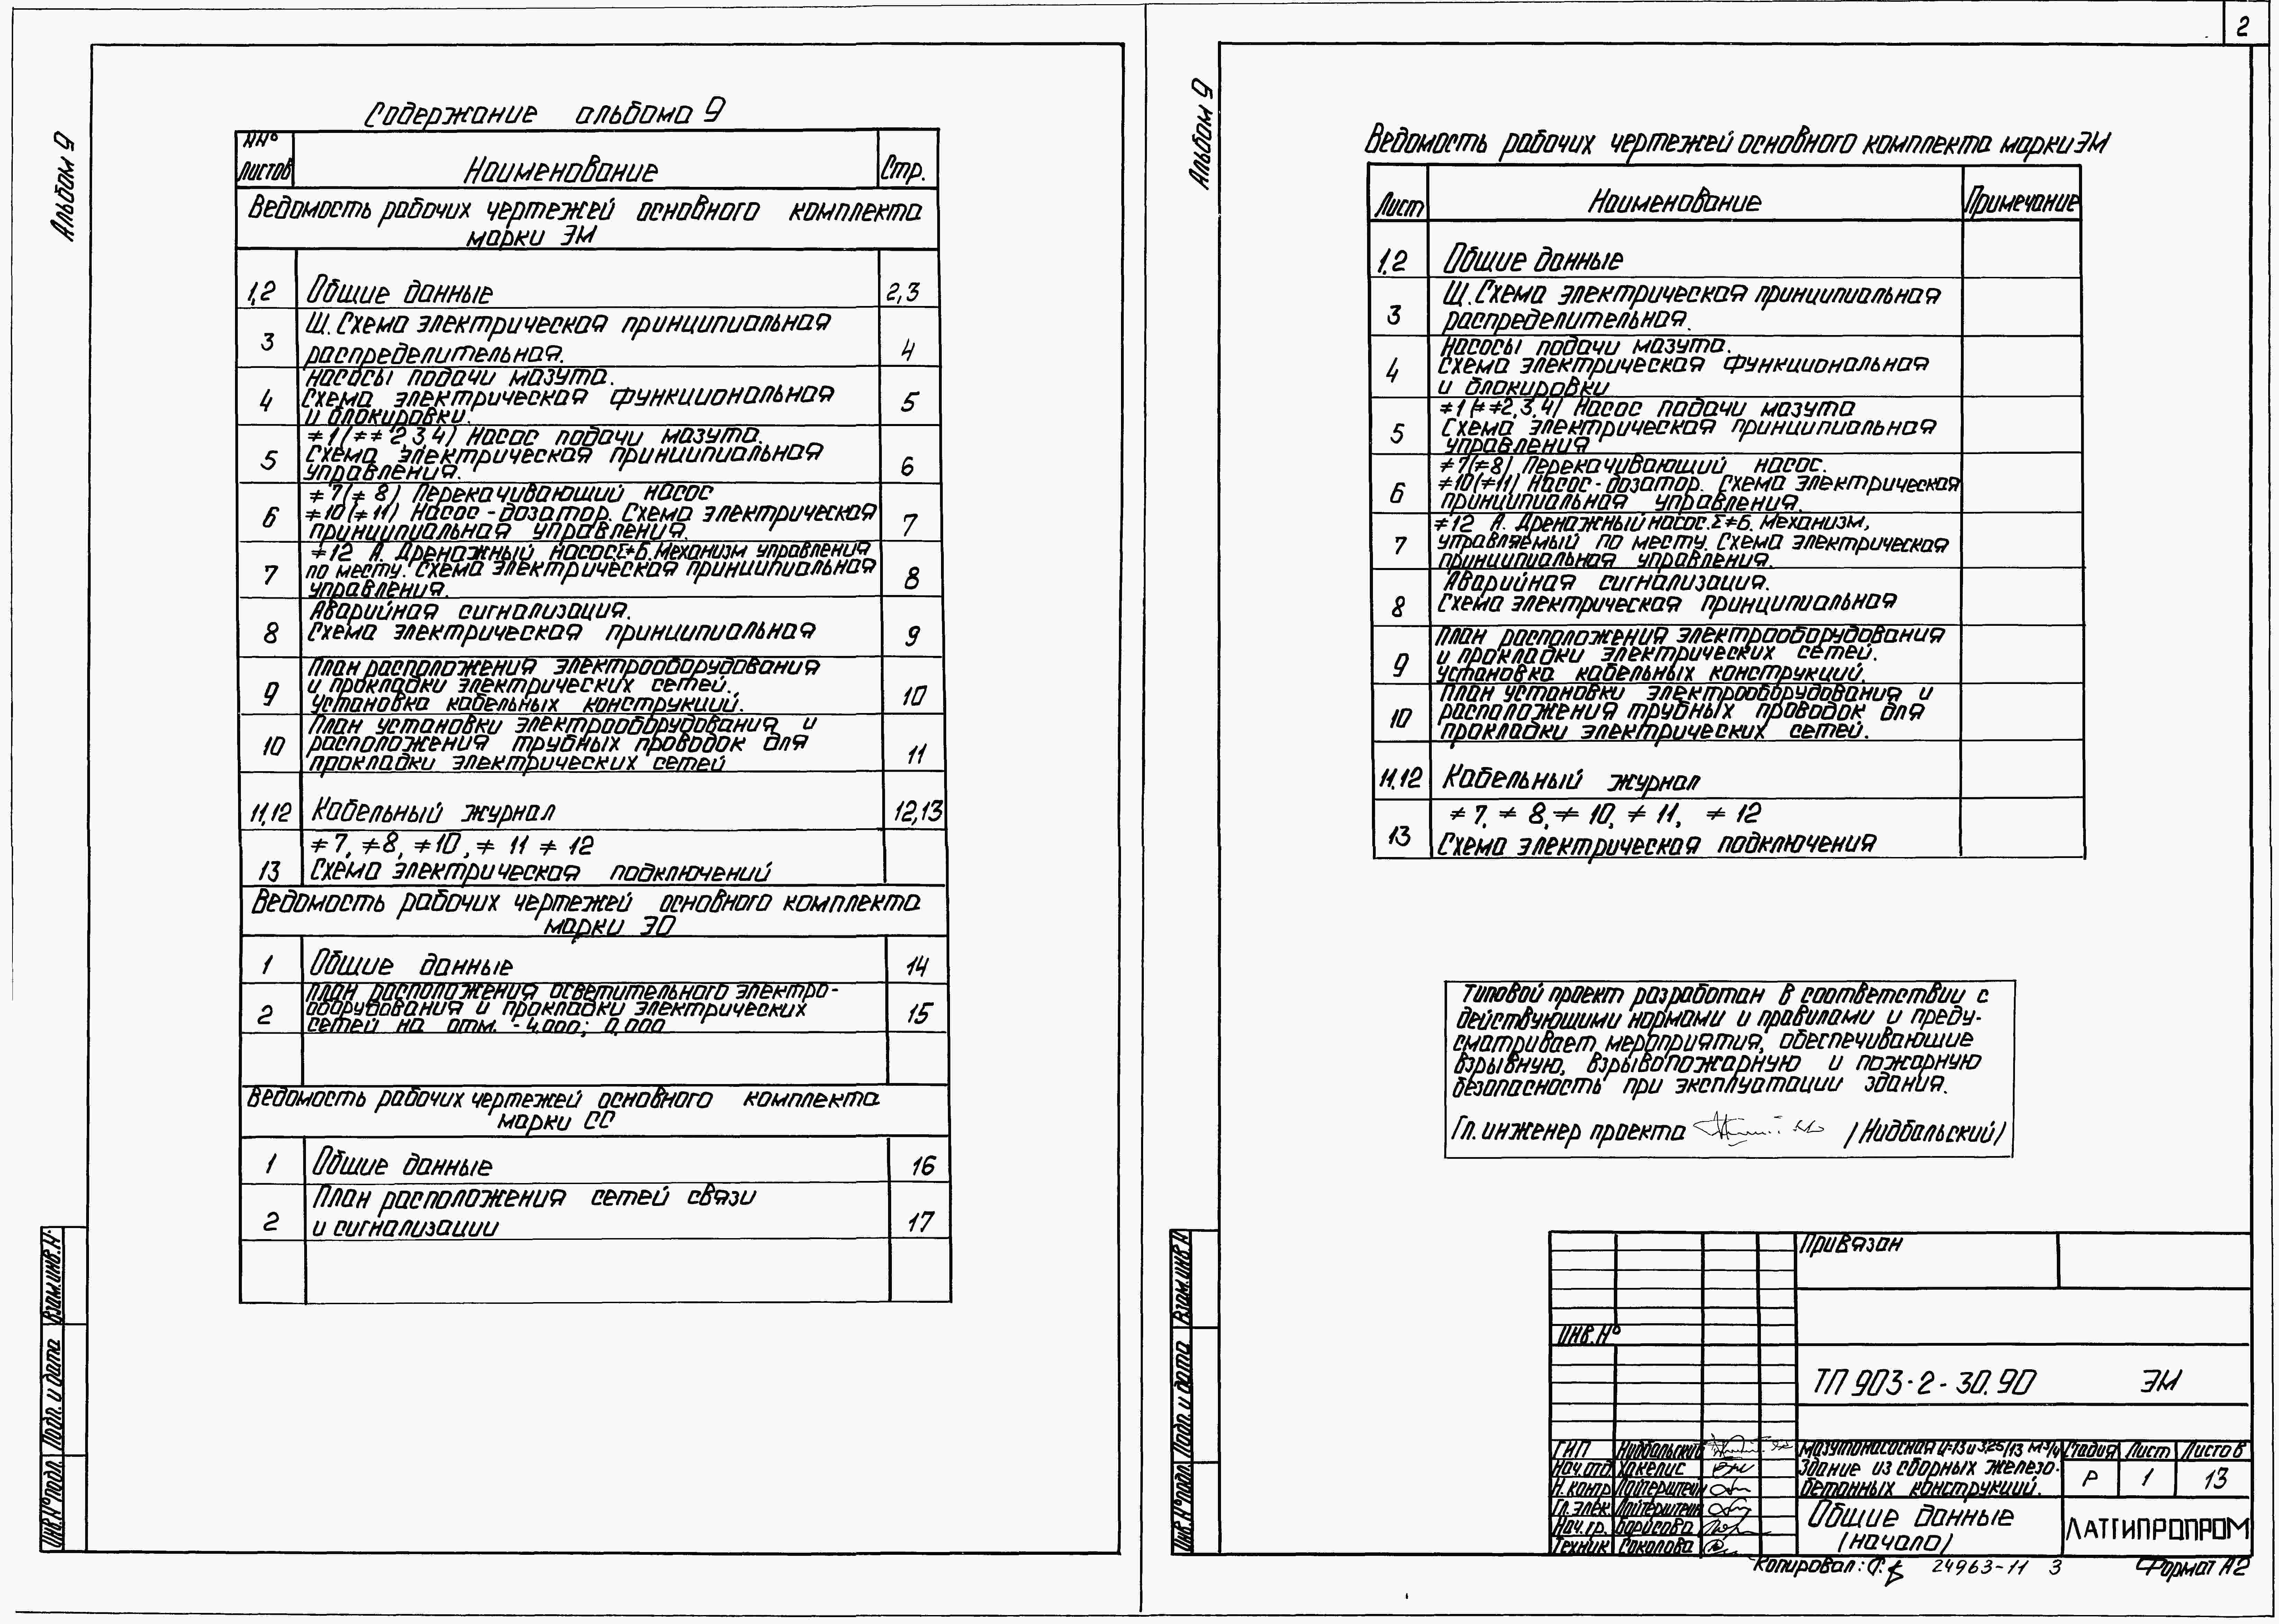 Альбом 9
Содержание альбома 9
NN° листов
Наименование
Стр.
Ведомость рабочих чертежей основного комплекта
марки ЭМ
1,2 Общие данные 2,3
Щ. Схема электрическая принципиальная
3 распределительная. 4
Насосы подачи мазута.
4 Схема электрическая функциональная 5
и блокировки.
≠1(≠≠ 2,3,4) Насос подачи мазута.
5 Схема электрическая принципиальная 6
управления.
≠7(≠ 8) Перекачивающий насос
6 ≠10(≠ 11) Насос-дозатор. Схема электрическая 7
принципиальная управления.
≠12 А. Дренажный насос Σ≠Б. Механизм управления
7 по месту. Схема электрическая принципиальная 8
управления.
Аварийная сигнализация.
8 Схема электрическая принципиальная 9
План расположения электрооборудования
9 и прокладки электрических сетей. 10
Установка кабельных конструкций.
План установки электрооборудования и
10 расположения трубных проводок для 11
прокладки электрических сетей
11,12 Кабельный журнал 12,13
≠7, ≠8, ≠10, ≠ 11 ≠ 12
13 Схема электрическая подключений
Ведомость рабочих чертежей основного комплекта
марки ЭО
1 Общие данные 14
План расположения осветительного электро-
2 оборудования и прокладки электрических 15
сетей на отм. -4,000; 0,000
Ведомость рабочих чертежей основного комплекта
марки СС
1 Общие данные 16
План расположения сетей связи
2 и сигнализации 17
Взам.инв.N°
Подп. и дата
Инв.N°подл.
2
Альбом 9
Ведомость рабочих чертежей основного комплекта марки ЭМ
Лист Наименование Примечание
1,2 Общие данные
Щ. Схема электрическая принципиальная
3 распределительная.
Насосы подачи мазута.
4 Схема электрическая функциональная
и блокировки
≠1(≠≠2,3,4) Насос подачи мазута
5 Схема электрическая принципиальная
управления
≠7(≠8) Перекачивающий насос.
6 ≠10(≠11) Насос-дозатор. Схема электрическая
принципиальная управления.
≠12 А. Дренажный насос. Σ≠Б. Механизм,
7 управляемый по месту. Схема электрическая
принципиальная управления.
Аварийная сигнализация.
8 Схема электрическая принципиальная
План расположения электрооборудования
9 и прокладки электрических сетей.
Установка кабельных конструкций.
План установки электрооборудования и
10 расположения трубных проводок для
прокладки электрических сетей.
11,12 Кабельный журнал
≠ 7, ≠ 8, ≠ 10, ≠ 11, ≠ 12
13 Схема электрическая подключения
Типовой проект разработан в соответствии с
действующими нормами и правилами и преду-
сматривает мероприятия, обеспечивающие
взрывную, взрывопожарную и пожарную
безопасность при эксплуатации здания.
Гл. инженер проекта /Нидбальский/
Взам.инв.N
Подп. и дата
Инв.N°подл.
Привязан
Инв.N°
ТП 903-2-30.90 ЭМ
ГИП Нидбальский
Нач.отд. Хакелис
Н.контр Лойтерштейн
Гл.элек. Лойтерштейн
Нач.гр. Борисова
Техник Соколова
Мазутонасосная Q=13 и 3,25/13 м³/ч
Здание из сборных железо-
бетонных конструкций.
Стадия Лист Листов
Р 1 13
Общие данные
(начало)
ЛАТГИПРОПРОМ
Копировал: 24963-11 3 Формат А2